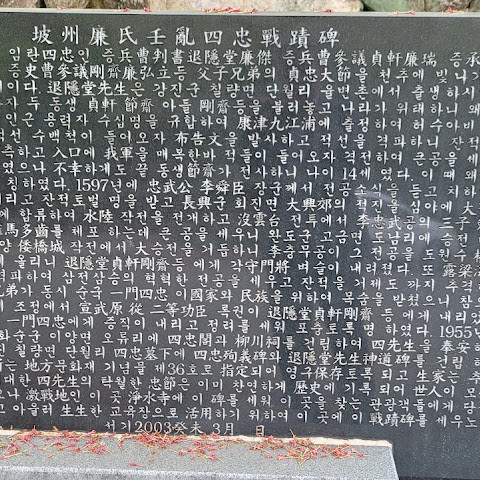 坡州廉氏壬亂四忠戰蹟碑
임란四忠인 증兵曹判書退隱堂廉傑 증兵曹參議貞軒廉瑞 증承
증吏曹參議剛齋廉弘立등 父子兄弟의 貞忠大節을 천추에 빛나기
비이다. 退隱堂先生은 강진군 칠량면 단월리 율변촌에서 출생하시
자 두 동생 貞軒 節齋 아들 剛齋등을 불러놓고 나라가 위태하니 왜
인근 용력자 수십명을 규합하여 康津九江浦에 출정하여 허수아비
적선 수백척이 들어오자 布告文을 발사하고 적선을 격파하니 잔적
측하고 入口에 我軍을 매복한바 적들이 들어오자 격전하여 큰공을 세
었으나 不幸하게도 끝 동생節齋가 전사하니 나이 14세였다. 이 때 왜
칭하였다. 1597년에 忠武公 李舜臣 장군께서 전공소식을 듣고 치하
리고 잔적토벌 명을 받고 長興군 회진면 大興郊의 적진을 심야에 大
에 합류하여 水陸 작전을 전개하고 沒雲台 전투에서 李忠武공의 三子
馬多齒를 체포 하는데 큰공을 세우니 완도군 고금면 도남리에 승전
양 倭橋城 작전에서 大승전을 거듭하니 李충무공이 그 전공을 도원수
에 올리니 退隱堂貞軒剛齋등 에게 각守門將 벼슬이 내려졌다. 또 霧梁
격파하여 삼전삼승의 혁혁한 전공을 세우고 잔적을 거제도 까지 추격
兄弟가 동시 순국 一門四忠이 이國家와 民族을 위하여 목숨을 받쳤으니 참으
조정에서 宣武原從 二等功臣 록권이 退隱堂貞軒剛齋등 에게 내리었
一門四忠에게 증직이 내리고 정려를 세워 포충토록 명 하였다. 1955년
화순군 이양면 오류리에 四忠閣과 柳川祠를 건립하여 四先生을 奉安하
칠량면 단월리 四忠墓下에 四忠殉義碑와 退隱堂先生神道碑를 건립
는 地方文化財 기념물 제36호로 指定되어 영구保存토록 되고 生家는 추
대한 四先生의 탁월한 忠節은 이미 찬연하게 歷史에 기록 되어 世人이 모
나 激戰地인 이 곳 淨水寺에 이 碑를 세워 이 곳을 찾는 관광객들에게 당
고 아울러 生生한 교육장으로 活用하기 위하여 이 곳에 이 戰蹟碑를 세우노
서기2003癸未 3月 日